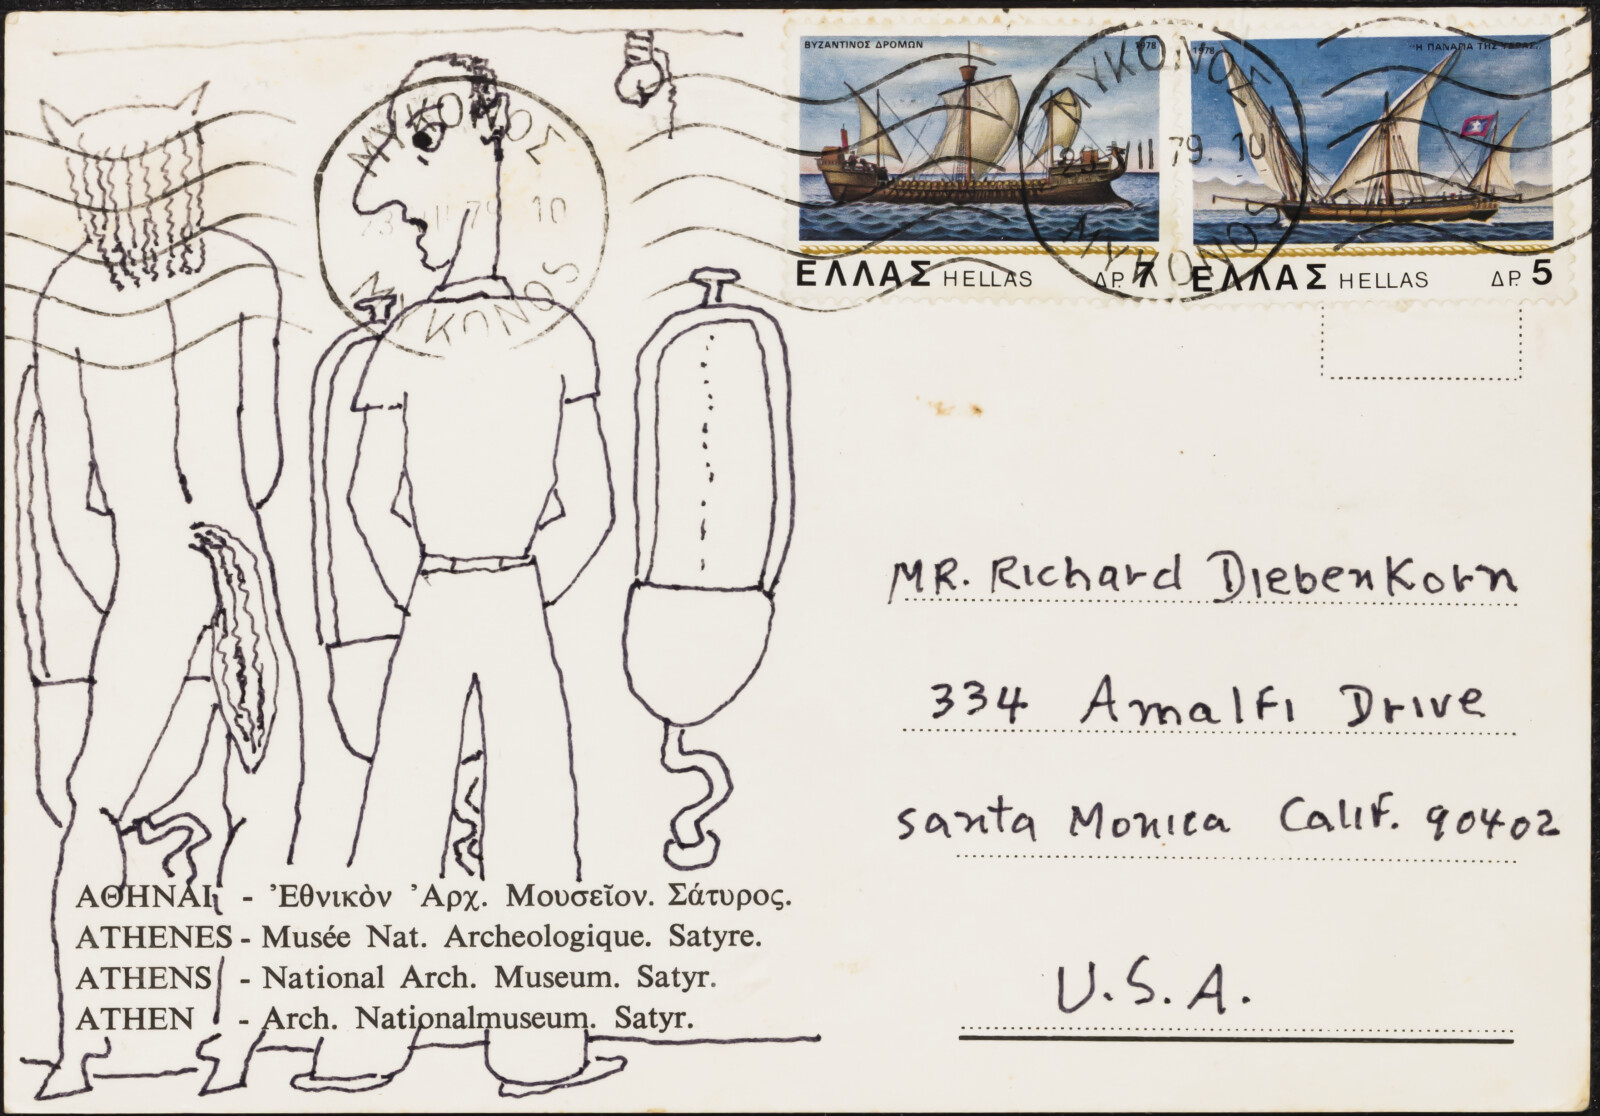 ΒΥΖΑΝΤΙΝΟΣ ΔΡΟΜΩΝ 1978
1978 Η ΠΑΝΑΓΙΑ ΤΗΣ ΥΔΡΑΣ
ΕΛΛΑΣ HELLAS ΔΡ. 7
ΕΛΛΑΣ HELLAS ΔΡ. 5
ΜΥΚΟΝΟΣ
VII 79. 10
ΜΥΚΟΝΟΣ
ΜΥΚΟΝΟΣ
79 10
ΜΥΚΟΝΟΣ
MR. Richard Diebenkorn
334 Amalfi Drive
Santa Monica Calif. 90402
U.S.A.
ΑΘΗΝΑΙ - Ἐθνικὸν Ἀρχ. Μουσεῖον. Σάτυρος.
ATHENES - Musée Nat. Archeologique. Satyre.
ATHENS - National Arch. Museum. Satyr.
ATHEN - Arch. Nationalmuseum. Satyr.